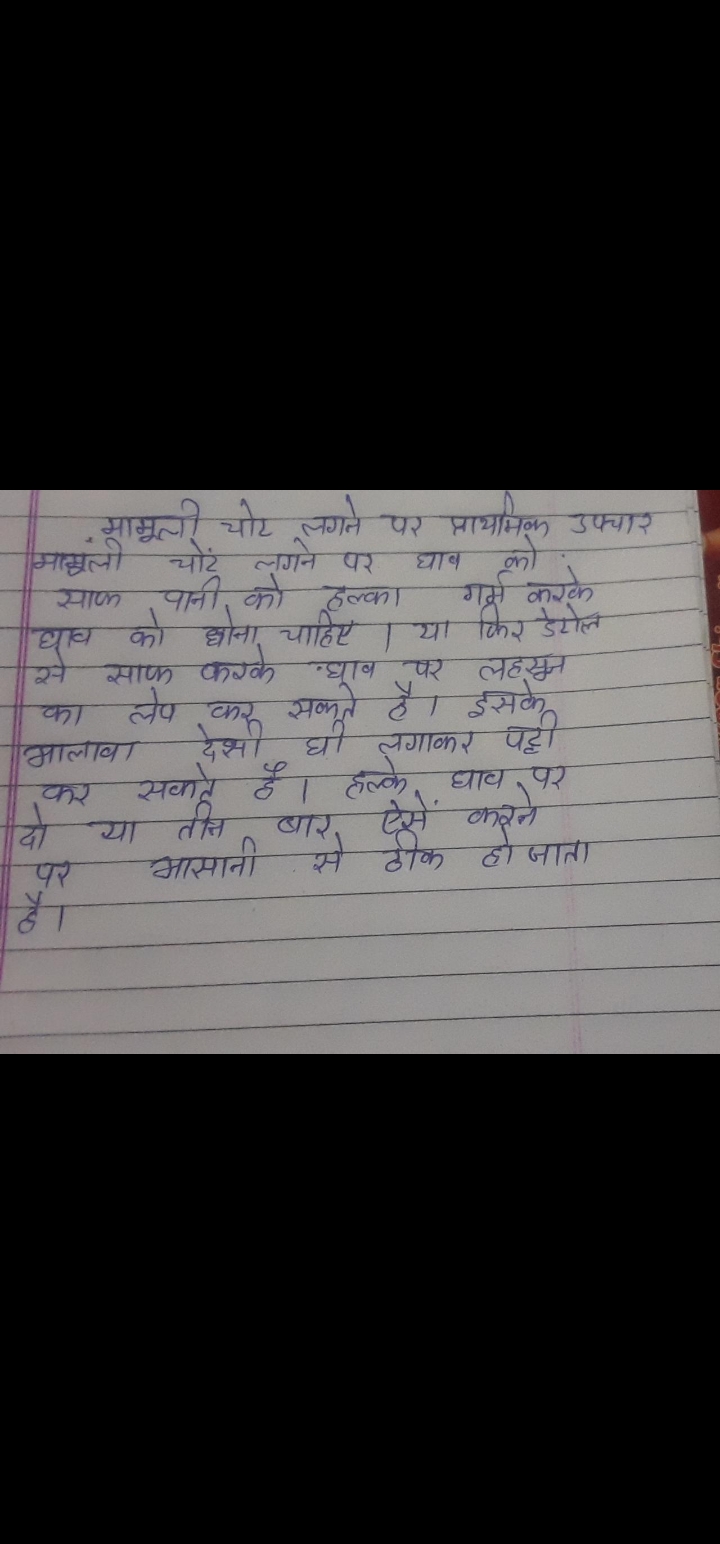 मामूली चोट लगने पर प्राथमिक उपचार
मामूंली चोंट लगने पर घाव को
साफ पानी को हल्का गर्म करके
घाव को धोना चाहिए । या फिर डेटोल
से साफ करके घाव पर लहसुन
का लेप कर सकते है। इसके
आलावा देसी घी लगाकर पट्टी
कर सकते है । हल्के घाव पर
दो या तीन बार ऐसें करने
पर आसानी से ठीक हो जाता
है।